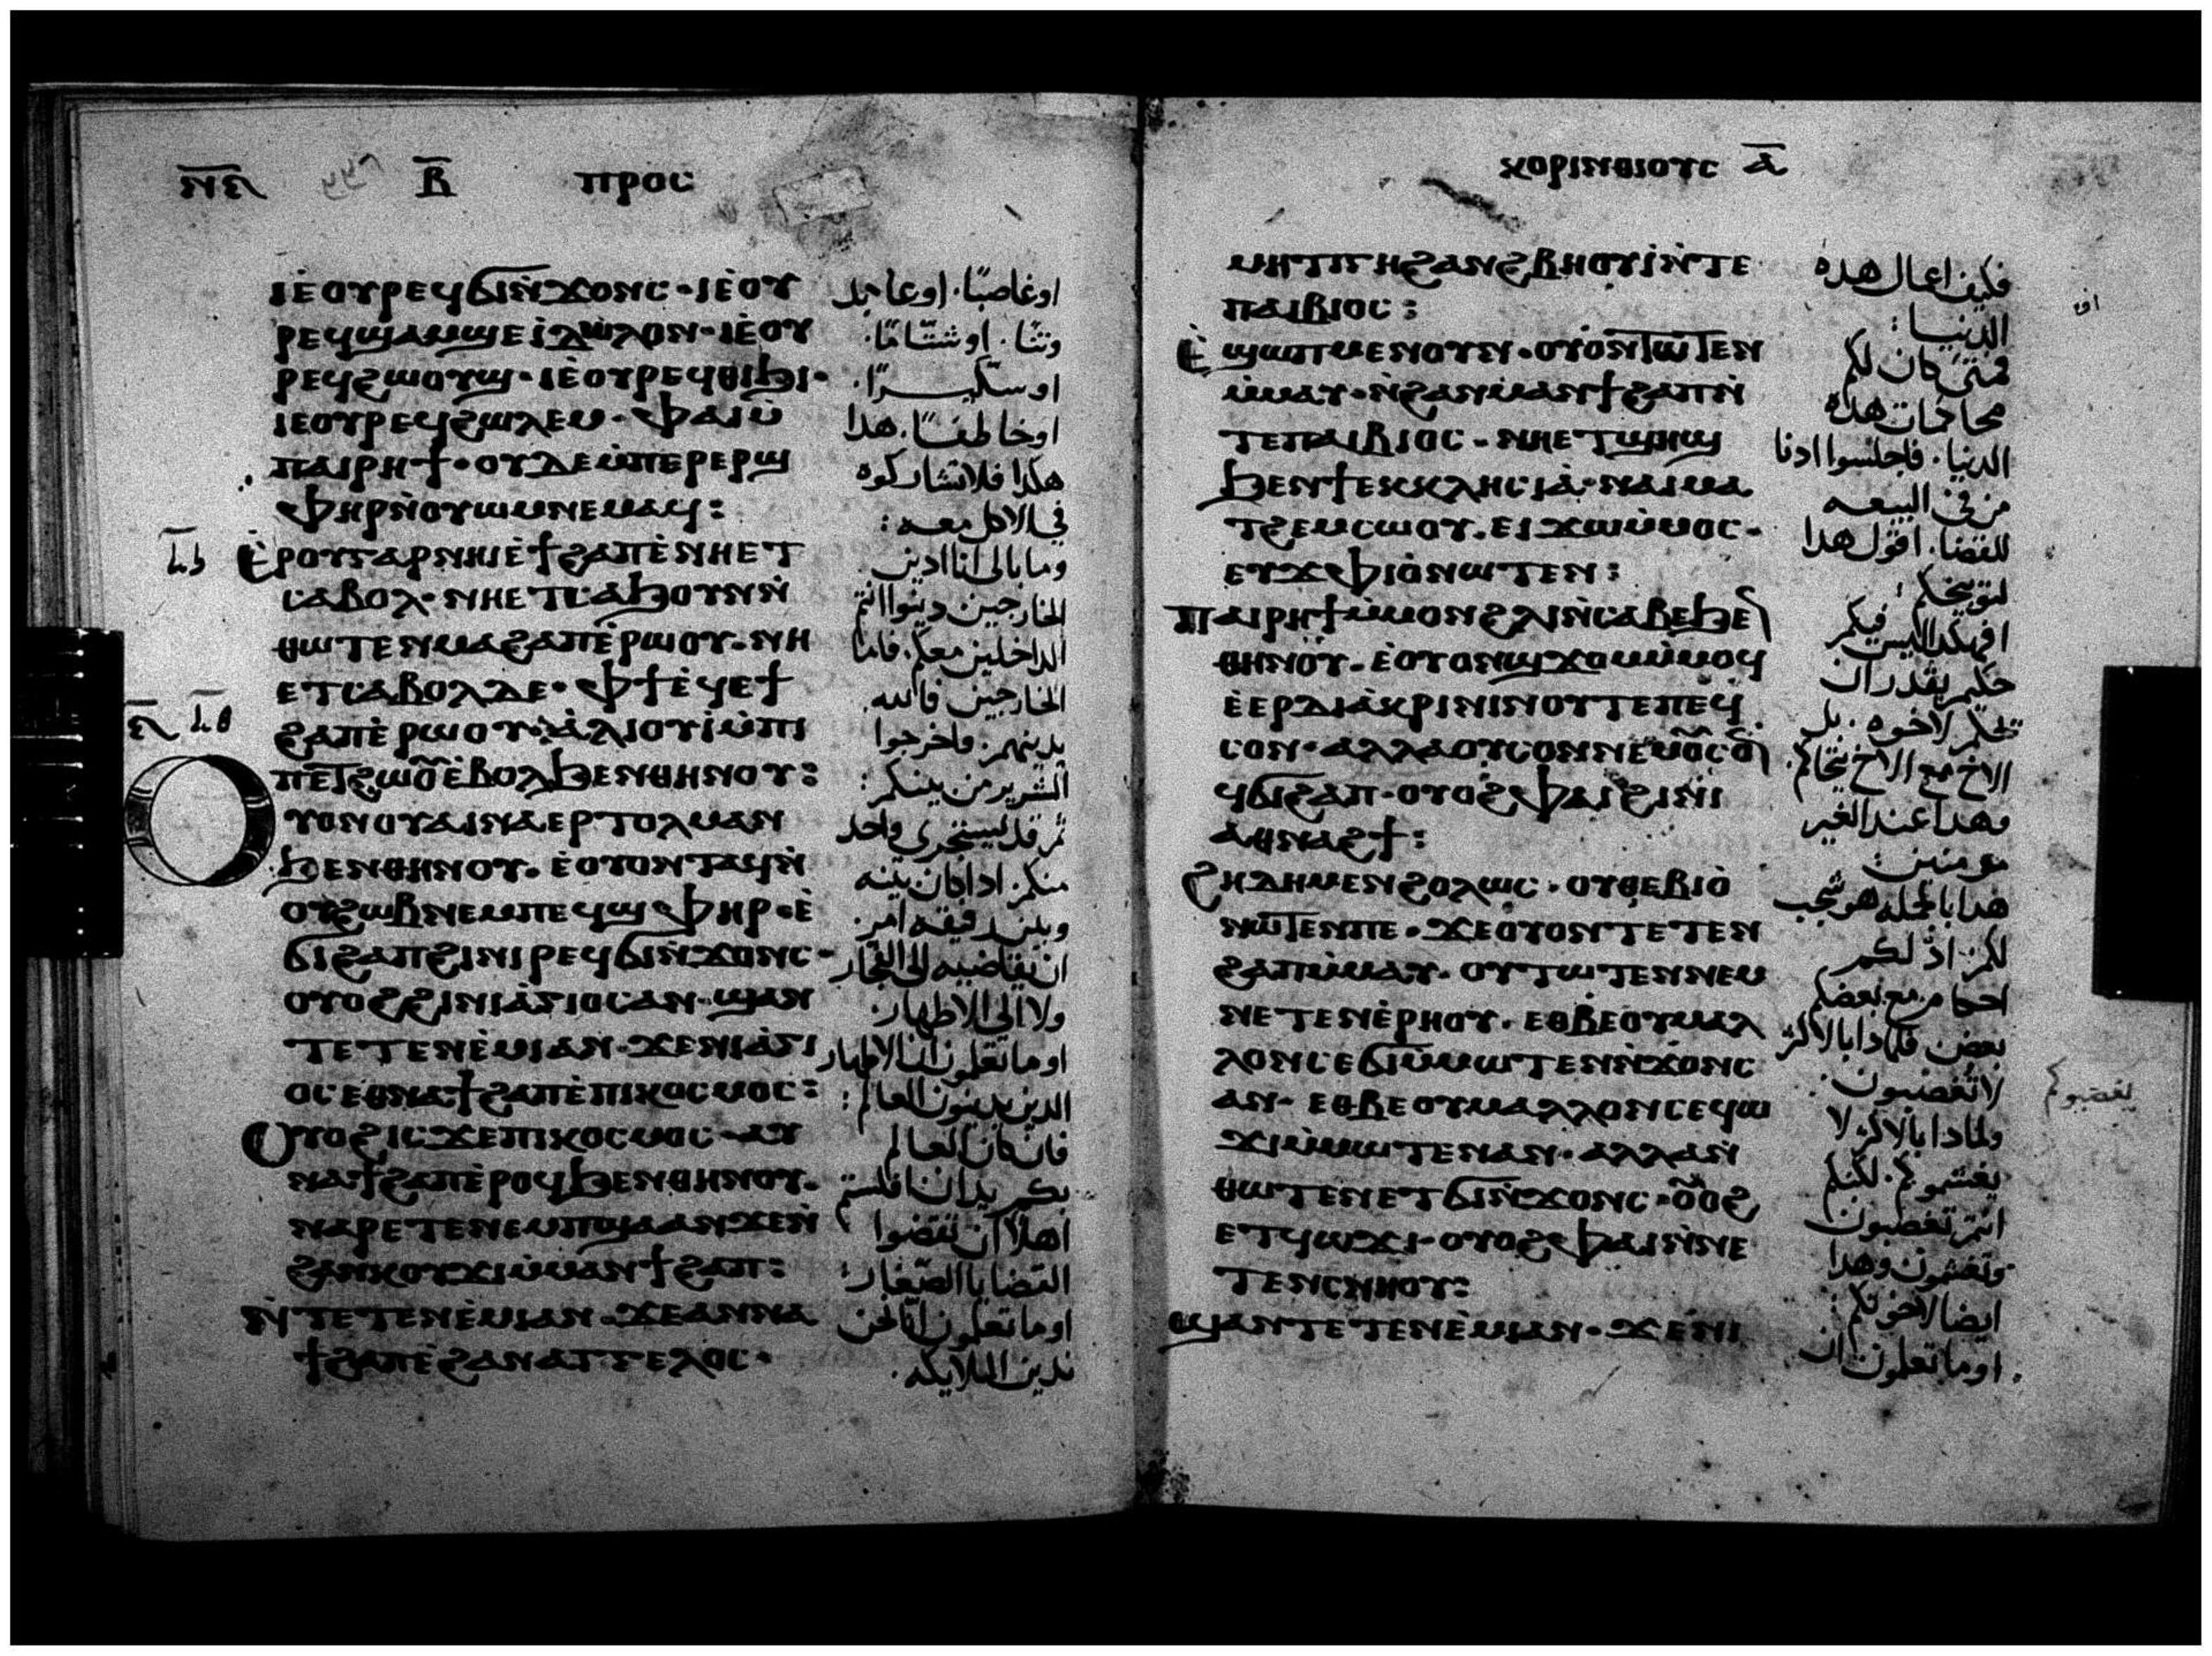 ⲛ̅ⲏ̅ ⲃ̅ ⲡⲣⲟⲥ
ⲓⲉ̀ⲟⲩⲣⲉϥϭⲓⲛ̀ϫⲟⲛⲥ · ⲓⲉ̀ⲟⲩ
ⲣⲉϥϣⲁⲙϣⲉⲓ̀ⲇⲱⲗⲟⲛ · ⲓⲉ̀ⲟⲩ
ⲣⲉϥϩⲱⲟⲩϣ · ⲓⲉ̀ⲟⲩⲣⲉϥⲑⲓϧⲓ ·
ⲓⲉⲟⲩⲣⲉϥϩⲱⲗⲉⲙ · ⲫⲁⲓⲙ̀
ⲡⲁⲓⲣⲏϯ · ⲟⲩⲇⲉⲙ̀ⲡⲉⲣⲉⲣϣ
ⲫⲏⲣⲛ̀ⲟⲩⲱⲙⲛⲉⲙⲁϥ :
ⲉ̀ⲣⲟⲩⲅⲁⲣⲛⲏⲓⲉ̀ϯϩⲁⲡⲉ̀ⲛⲏⲉⲧ
ⲥⲁⲃⲟⲗ · ⲛⲏⲉⲧⲥⲁϧⲟⲩⲛⲛ̀
ⲑⲱⲧⲉⲛⲙⲁϩⲁⲡⲉ̀ⲣⲱⲟⲩ · ⲛⲏ
ⲉⲧⲥⲁⲃⲟⲗⲇⲉ · ⲫϯⲉ̀ϥⲉϯ
ϩⲁⲡⲉ̀ⲣⲱⲟⲩ · ⲁ̀ⲗⲓⲟⲩⲓ̀ⲙ̀ⲡⲓ
ⲡⲉⲧϩⲱⲟ̅ⲉ̀ⲃⲟⲗϧⲉⲛⲑⲏⲛⲟⲩ :
ⲟⲩⲟⲛⲟⲩⲁⲓⲛⲁⲉⲣⲧⲟⲗⲙⲁⲛ
ϧⲉⲛⲑⲏⲛⲟⲩ · ⲉ̀ⲟⲩⲟⲛⲧⲁϥⲛ̀
ⲟⲩϩⲱⲃⲛⲉⲙⲡⲉϥϣⲫⲏⲣ · ⲉ̀
ϭⲓϩⲁⲡϩⲓⲛⲓⲣⲉϥϭⲓⲛ̀ϫⲟⲛⲥ ·
ⲟⲩⲟϩϩⲓⲛⲓⲁ̀ⲅⲓⲟⲥⲁⲛ · ϣⲁⲛ
ⲧⲉⲧⲉⲛⲉ̀ⲙⲓⲁⲛ · ϫⲉⲛⲓⲁ̀ⲅⲓ
ⲟⲥⲉⲑⲛⲁϯϩⲁⲡⲉ̀ⲡⲓⲕⲟⲥⲙⲟⲥ :
ⲟⲩⲟϩⲓⲥϫⲉⲡⲓⲕⲟⲥⲙⲟⲥ · ⲁⲩ
ⲛⲁϯϩⲁⲡⲉ̀ⲣⲟϥϧⲉⲛⲑⲏⲛⲟⲩ ·
ⲛⲁⲣⲉⲧⲉⲛⲉⲙⲡϣⲁⲁⲛϫⲉⲛ̀
ϩⲁⲛⲕⲟⲩϫⲓⲙ̀ⲙⲁⲛϯϩⲁⲡ :
ⲛ̀ⲧⲉⲧⲉⲛⲉ̀ⲙⲓⲁⲛ · ϫⲉⲁⲛⲛⲁ
ϯϩⲁⲡⲉ̀ϩⲁⲛⲁⲅⲅⲉⲗⲟⲥ ·
اوغاصبًا. اوعابد
وثنا. اوشتامًا.
اوسكيرًا.
اوخاطفًا. هدا
هكدا فلاتشاركوه
في الاكل معه:
وما بالى انا ادين
الخارجين دينوا انتم
الداخلين معكم. فاما
الخارجين فالله
يدينهم. واخرجوا
الشرير من بينكم:
ثم قد ليستجرى واحد
منكم. ادا كان بينه
وبين رفيقه امر
ان يقاضيه الى الفجار
ولا الى الاطهار.
اوما تعلمون ان الاطهار
الدين يدينون العالم:
فان كان العالم
بكم يدان افلستم
اهلا ان تقضوا
القضايا الصغار:
اوما تعلمون اننا نحن
ندين الملايكه.
ⲕⲟⲣⲓⲛⲑⲓⲟⲩⲥ ⲁ̅
ⲙⲏⲧⲓⲡⲏϩⲁⲛϩⲃⲏⲟⲩⲓ̀ⲛ̀ⲧⲉ
ⲡⲁⲓⲃⲓⲟⲥ :
ⲉ̀ϣⲱⲡⲙⲉⲛⲟⲩⲛ · ⲟⲩⲟ̀ⲛⲧⲱⲧⲉⲛ
ⲙ̀ⲙⲁⲩ · ⲛ̀ϩⲁⲛⲙⲁⲛϯϩⲁⲡⲛ̀
ⲧⲉⲡⲁⲓⲃⲓⲟⲥ · ⲛⲏⲉⲧϣⲏϣ
ϧⲉⲛϯⲉⲕⲕⲗⲏⲥⲓⲁ̀ · ⲛⲁⲓⲙⲁ
ⲧϩⲉⲙⲥⲱⲟⲩ · ⲉⲓϫⲱⲙ̀ⲙⲟⲥ ·
ⲉⲩϫⲫⲓⲟ̀ⲛⲱⲧⲉⲛ :
ⲡⲁⲓⲣⲏϯⲙ̀ⲙⲟⲛϩⲗⲓⲛ̀ⲥⲁⲃⲉϧⲉⲛ
ⲑⲏⲛⲟⲩ · ⲉ̀ⲟⲩⲟⲛϣϫⲟⲙⲙ̀ⲙⲟϥ
ⲉ̀ⲉⲣⲇⲓⲁ̀ⲕⲣⲓⲛⲓⲛⲟⲩⲧⲉⲡⲉϥ
ⲥⲟⲛ · ⲁⲗⲗⲁⲟⲩⲥⲟⲛⲛⲉⲙⲟ̅ⲥⲟⲛ
ϥϭⲓϩⲁⲡ · ⲟⲩⲟϩⲫⲁⲓϩⲓⲛⲓ
ⲁⲑⲛⲁϩϯ :
ϩⲏⲇⲏⲙⲉⲛϩⲟⲗⲱⲥ · ⲟⲩⲑⲉⲃⲓⲟ̀
ⲛⲱⲧⲉⲛⲡⲉ · ϫⲉⲟⲩⲟⲛⲧⲉⲧⲉⲛ
ϩⲁⲡⲙ̀ⲙⲁⲩ · ⲟⲩⲧⲱⲧⲉⲛⲛⲉⲙ
ⲛⲉⲧⲉⲛⲉ̀ⲣⲏⲟⲩ · ⲉⲑⲃⲉⲟⲩⲙⲁⲗ
ⲗⲟⲛⲥⲉϭⲓⲙ̀ⲙⲱⲧⲉⲛⲛ̀ϫⲟⲛⲥ
ⲁⲛ · ⲉⲑⲃⲉⲟⲩⲙⲁⲗⲗⲟⲛⲥⲉϥⲱ
ϫⲓⲙ̀ⲙⲱⲧⲉⲛⲁⲛ · ⲁⲗⲗⲁⲛ̀
ⲑⲱⲧⲉⲛⲉⲧϭⲓⲛ̀ϫⲟⲛⲥ · ⲟ̅ⲟϩ
ⲉⲧϥⲱϫⲓ · ⲟⲩⲟϩⲫⲁⲓⲛ̀ⲛⲉ
ⲧⲉⲛⲥⲛⲏⲟⲩ :
ϣⲁⲛⲧⲉⲧⲉⲛⲉ̀ⲙⲓⲁⲛ · ϫⲉⲛⲓ
فكيف اعمال هده
الدنيا:
فمتى كان لكم
محاكمات هده
الدنيا. فاجلسوا ادنا
من في البيعه
للقضا. اقول هدا
لتوبيخكم:
افهكدا ليس فيكم
حكيم يقدر ان
يحكم لاخوه. بل
الاخ مع الاخ يتحاكم.
وهدا عند الغير
مومنين:
هدا بالجمله هو شجب
لكم. اذ لكم
احكام مع بعضكم
بعض فلمادا بالاكثر
لا تغصبون.
ولمادا بالاكثر لا
يغشموكم. لكنكم
انتم تغصبون
وتغشمون وهدا
ايضا لاخوتكم:
اوما تعلمون ان